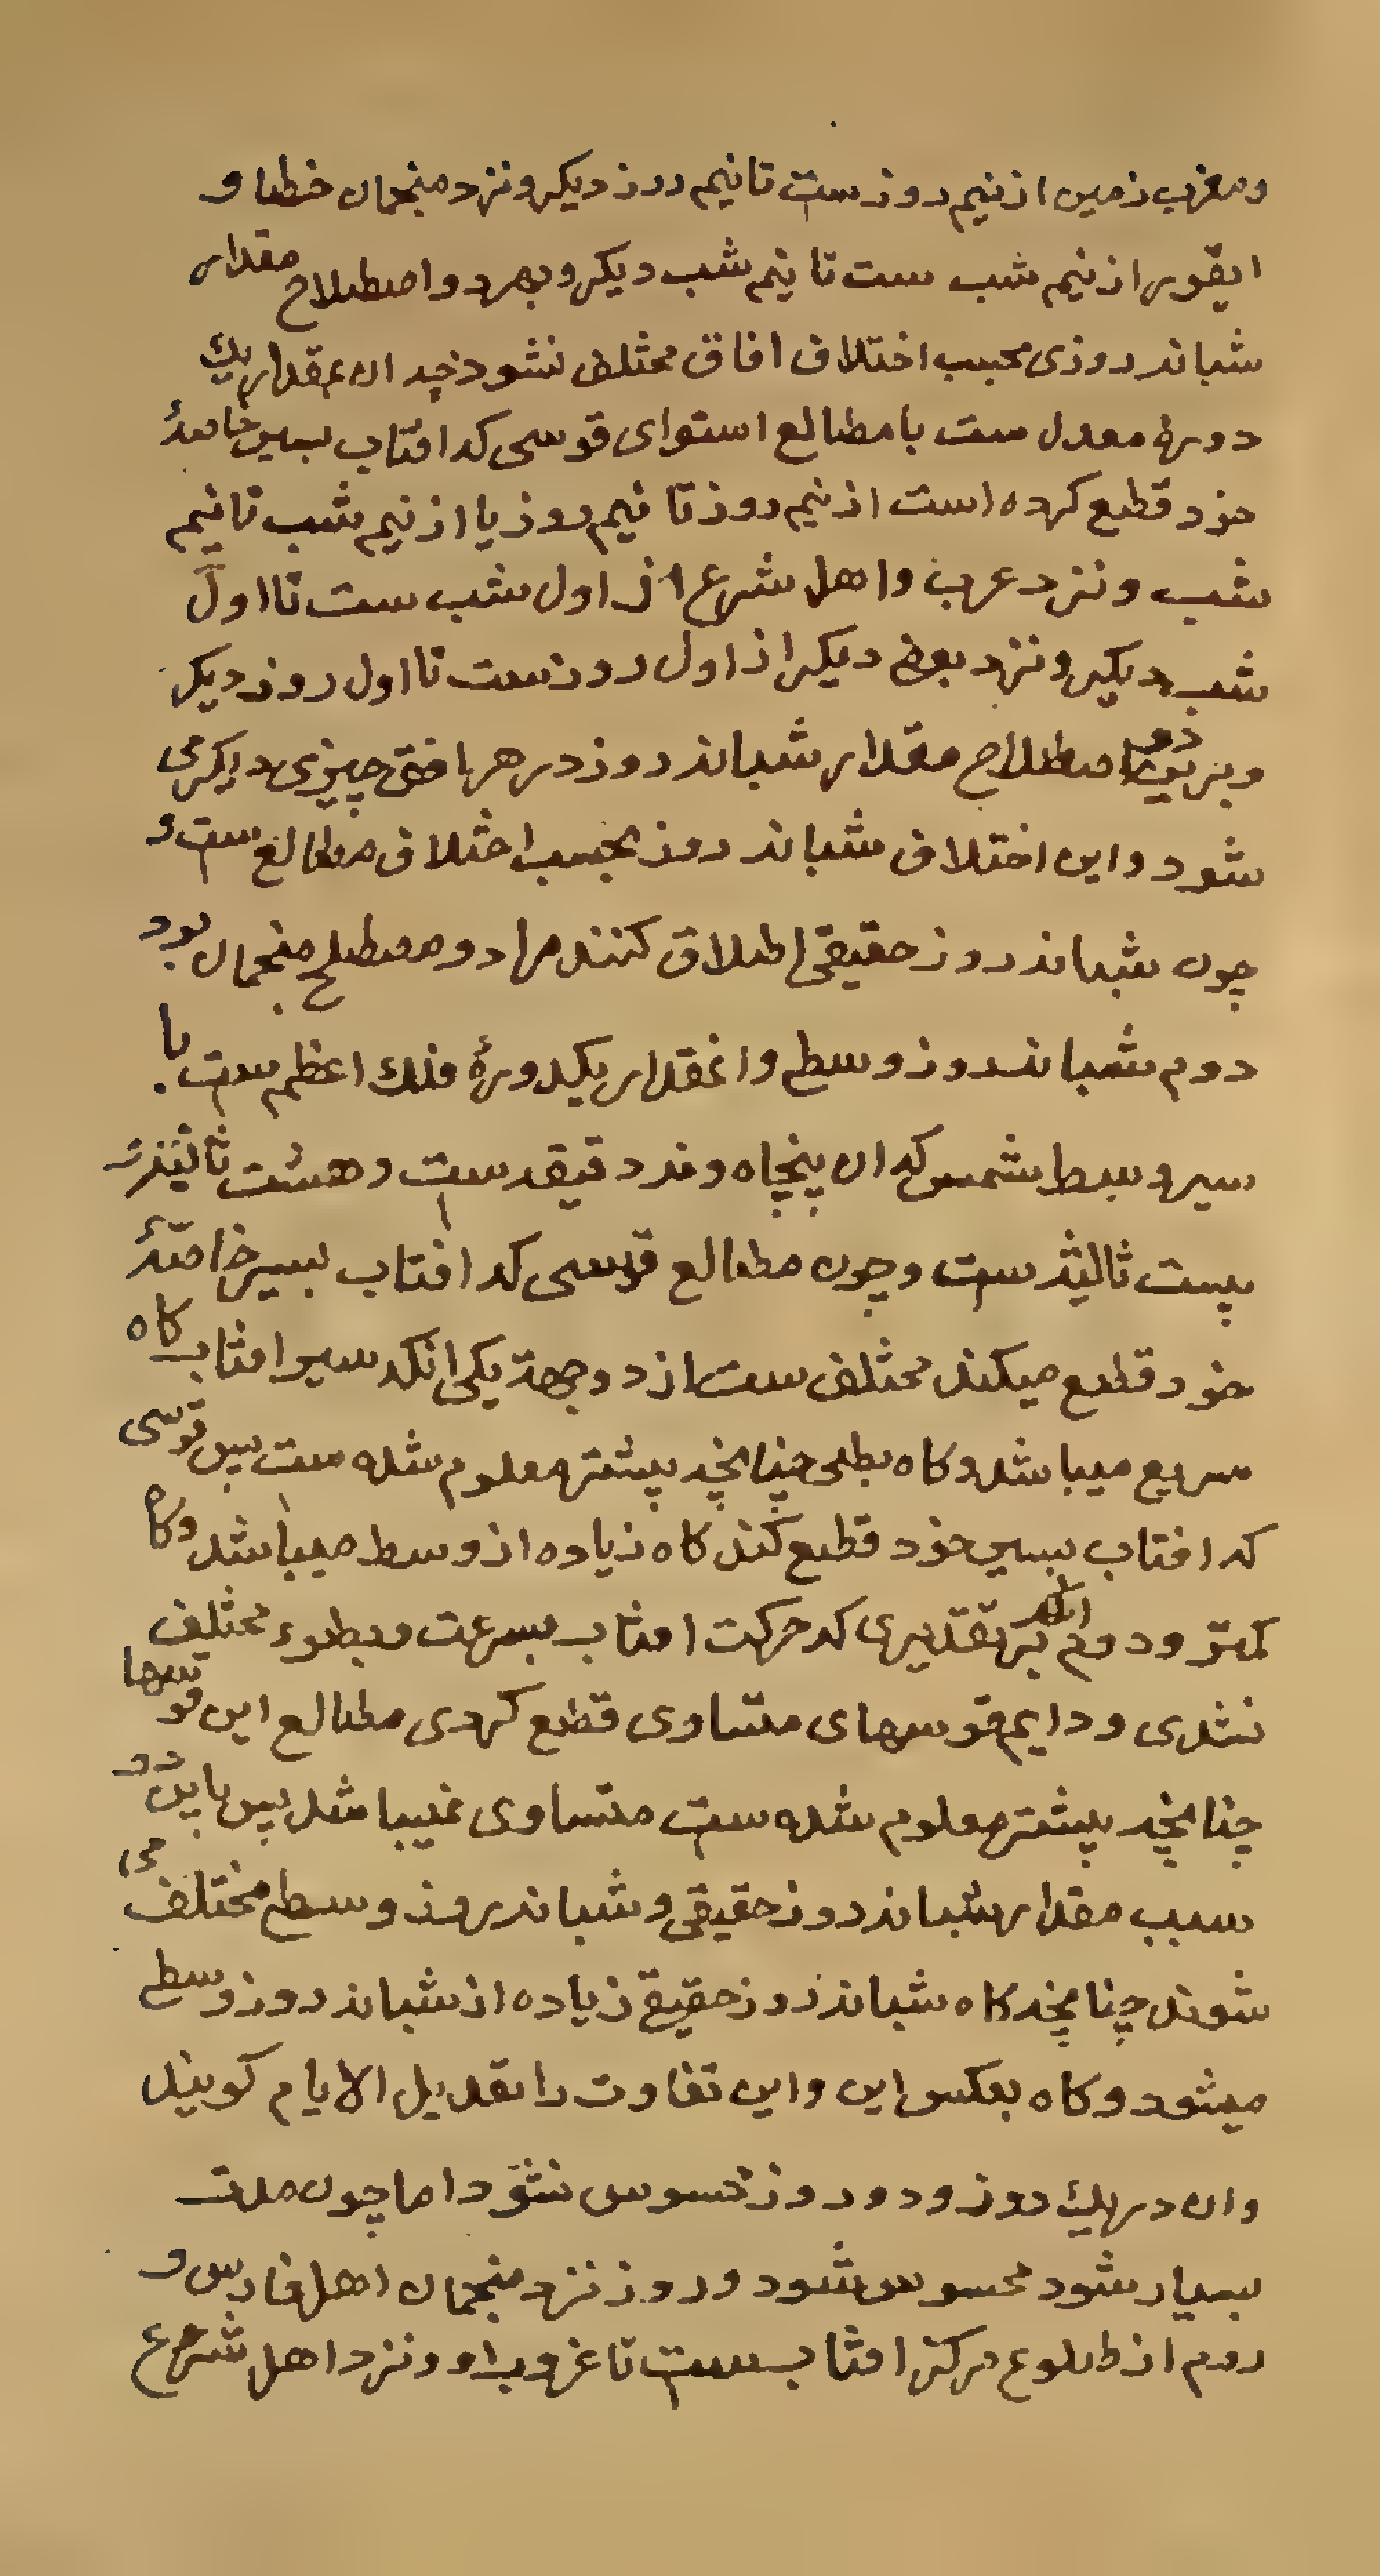 ومغرب زمین از نیم روزست تا نیم روز دیکر ونزد منجمان خطا و
ایقور از نیم شب ست تا نیم شب دیکر وبهر دو اصطلاح مقدار
شبانه روزی بحسب اختلاف افاق مختلف نشود چه ان بمقدار یك
دورهٔ معدل ست با مطالع استوای قوسی که افتاب بسیر خاصهٔ
خود قطع کرده است از نیم روز تا نیم روز یا از نیم شب تا نیم
شب ونزد عرب واهل شرع از اول شب ست تا اول
شب دیکر ونزد بعضی دیکر از اول روزست تا اول روز دیکر
وبرین دو اصطلاح مقدار شبانه روز در هر افق چیزی دیکر می
شود واین اختلاف شبانه روز بحسب اختلاف مطالع ست و
چون شبانه روز حقیقی اطلاق کنند مراد ومصطلح منجمان بود
دوم شبانه روز وسطی وان بمقدار یکدورهٔ فلك اعظم ست با
سیر وسط شمس که ان پنجاه ونه دقیقه ست وهشت ثانیه و
بیست ثالثه ست وچون مطالع قوسی که افتاب بسیر خاصّهٔ
خود قطع میکند مختلف ست از دو جهة یکی انکه سیر افتاب کاه
سریع میباشد وکاه بطی چنانچه پیشتر معلوم شده ست پس قوسی
که افتاب بسیر خود قطع کند کاه زیاده از وسط میباشد وکاه
کمتر ودوم انکه بر تقدیری که حرکت افتاب بسرعت وبطوء مختلف
نشدی ودایم قوسهای متساوی قطع کردی مطالع این قوسها
چنانچه پیشتر معلوم شده ست متساوی نمیباشد پس باین دو
سبب مقدار شبانه روز حقیقی وشبانه روز وسطی مختلف می
شوند چنانچه کاه شبانه روز حقیقی زیاده از شبانه روز وسطی
میشود وکاه بعکس این واین تفاوت را تعدیل الایام کویند
وان در یك روز ودو روز محسوس نشود اما چون مدت
بسیار شود محسوس شود وروز نزد منجمان اهل فارس و
روم از طلوع مرکز افتاب ست تا غروب او ونزد اهل شرع